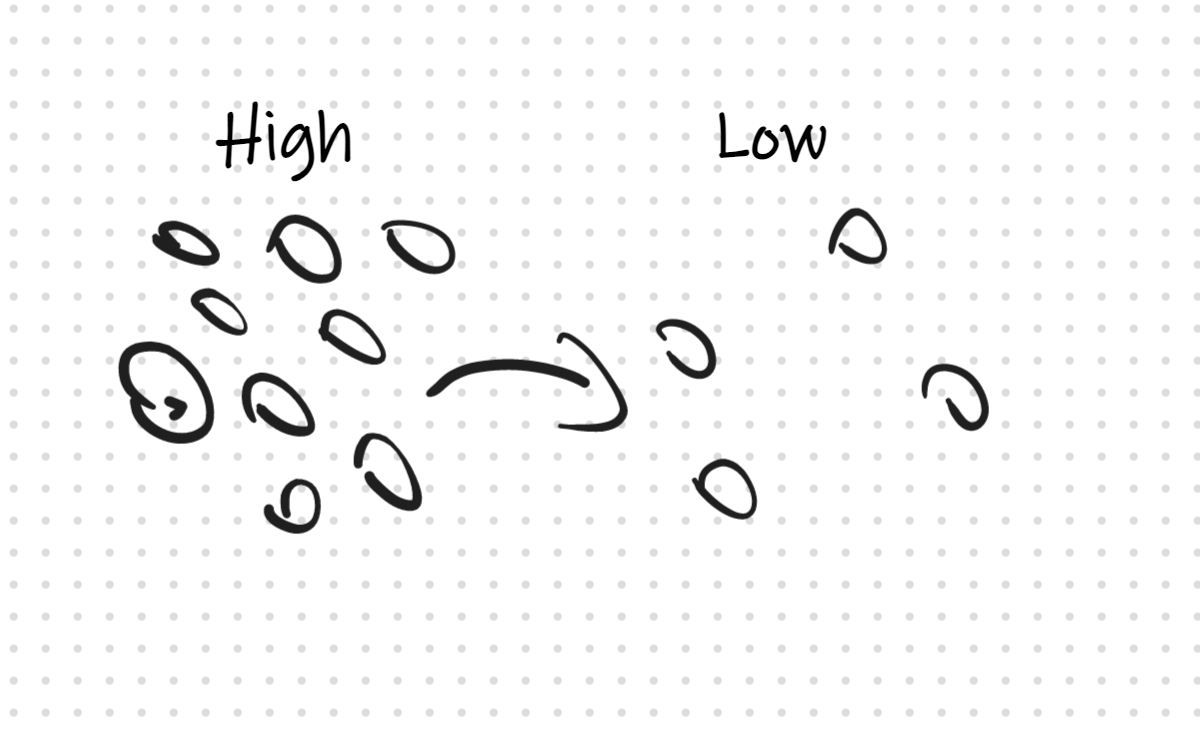 High
Low